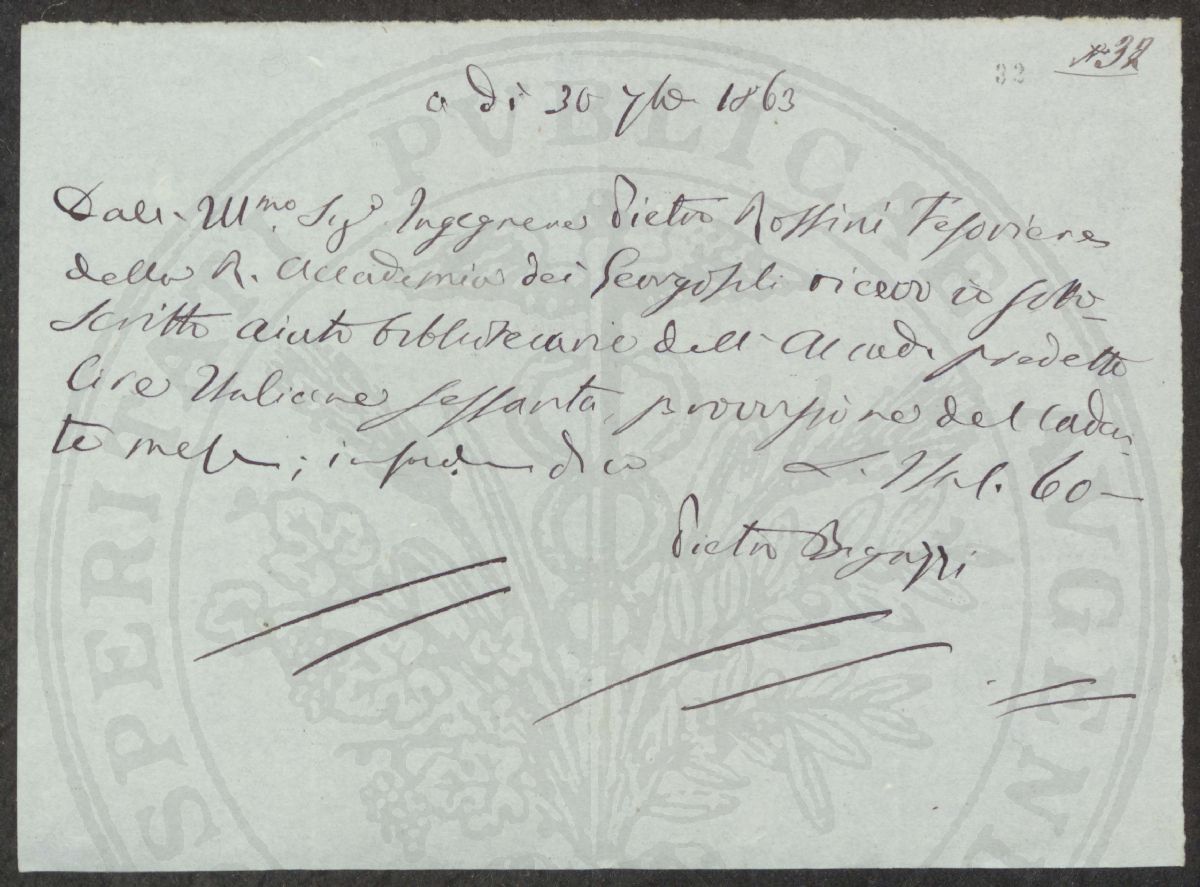 N° 32
32
a dì 30 7bre 1863
Dall'Ill.mo Sig.r Ingegnere Pietro Rossini Tesoriere
della R. Accademia dei Georgofili ricevo io sotto-
scritto aiuto bibliotecario dell'Accad. predetta
Lire Italiane sessanta, provvisione del caden-
te mese; in fede dico L. Ital. 60 —
Pietro Bigazzi
PUBLICAE
SPERITATI
AUGEN